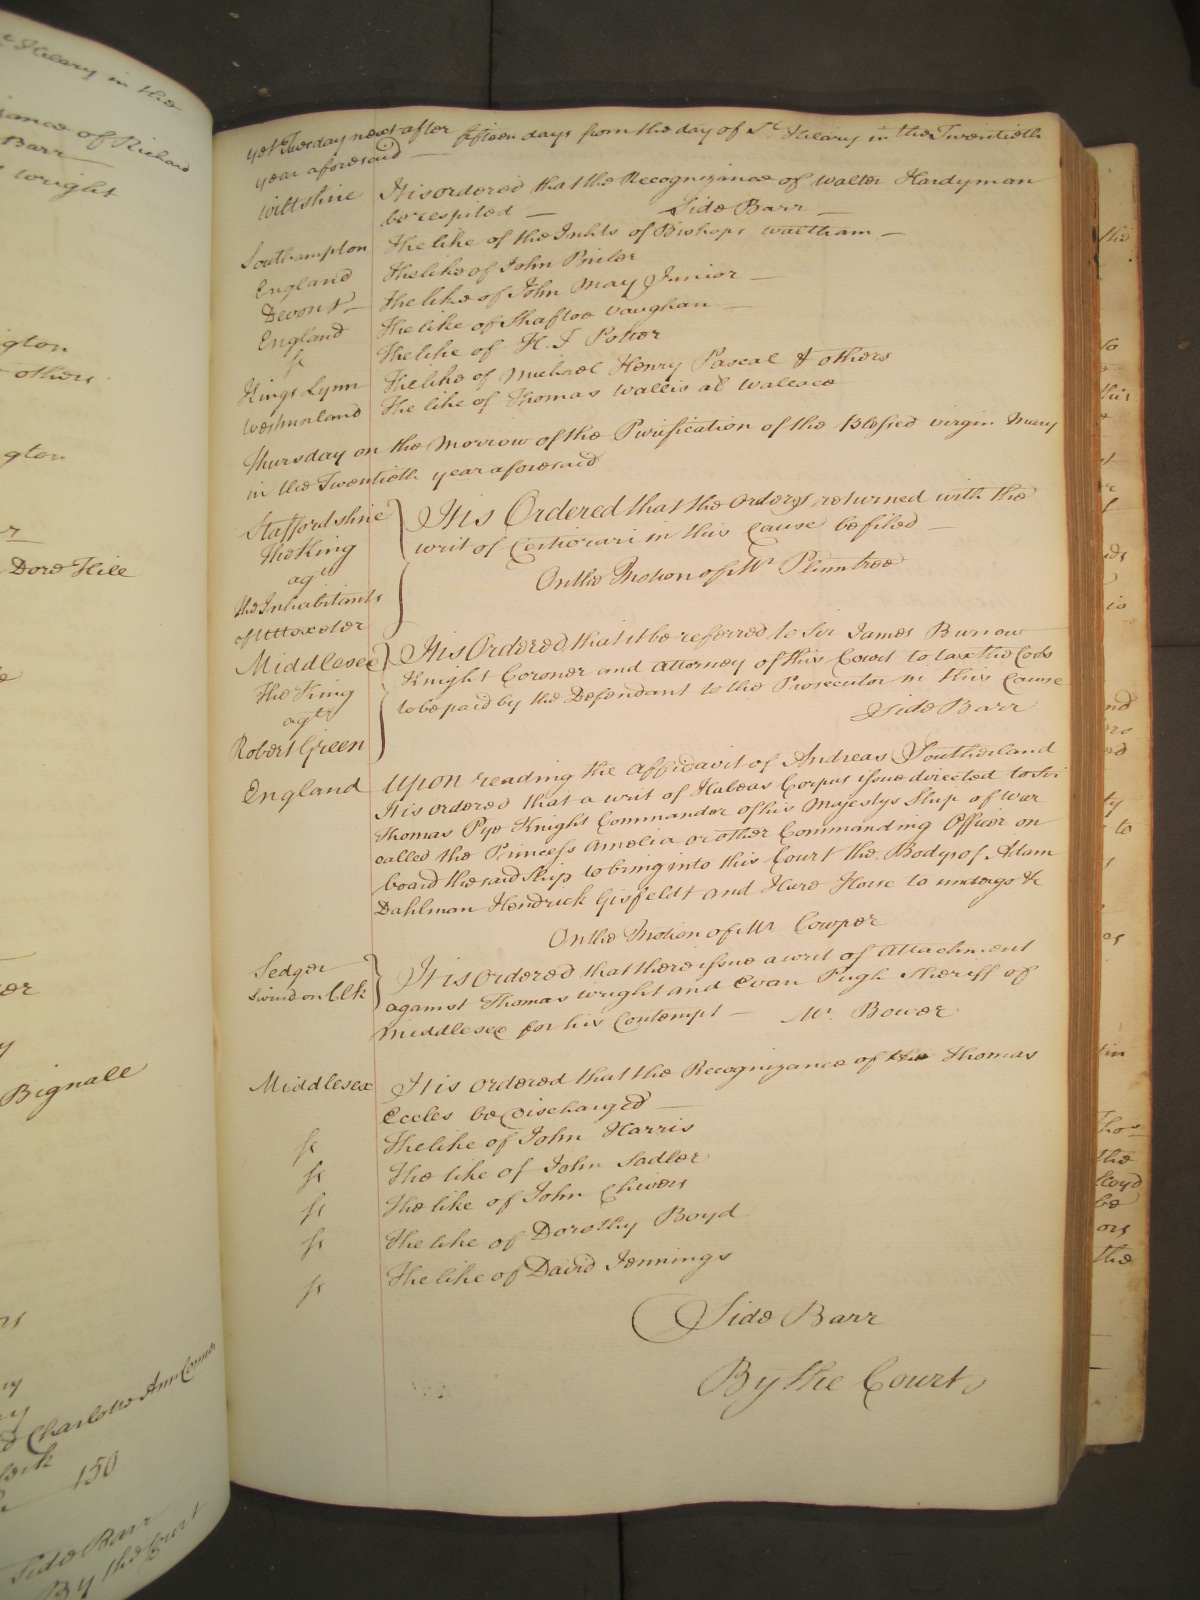 Hilary in the
Recognizance of Richard
Barr
Wright
others
Dord Hill
Bignall
Charlotte Ann
150
Side Barr
By the Court
yet Tuesday next after fifteen days from the day of St. Hilary in the Twentieth
year aforesaid
Wiltshire It is ordered that the Recognizance of Walter Hardyman
be respited — Side Barr —
Southampton The like of the Inhts of Bishops Waltham —
England The like of John Butler
Devon sh The like of John May Junior —
England The like of Shaftoe Vaughan —
Sr The like of H. J Potter
Kings Lynn The like of Michael Henry Pascal & others
Westmorland The like of Thomas Wallis al Wallace
Thursday on the Morrow of the Purification of the Blessed Virgin Mary
in the Twentieth year aforesaid
Staffordshire It is Ordered that the orders returned with the
The King writ of Certiorari in this Cause be filed —
agt On the Motion of Mr Plumtree
the Inhabitants
of Uttoxeter
Middlesex It is Ordered that it be referred to Sir James Burrow
The King Knight Coroner and Attorney of this Court to tax the Costs
agt to be paid by the Defendant to the Prosecutor in this Cause
Robert Green Side Barr
England Upon reading the Affidavit of Andreas Southerland
It is ordered that a writ of Habeas Corpus issue directed to Sir
Thomas Pye Knight Commander of his Majestys Ship of War
called the Princess Amelia or other Commanding Officer on
board the said Ship to bring into this Court the Bodys of Adam
Dahlman Hendrick Gisfeldt and Hure House to undergo &c
On the Motion of Mr Cowper
Sedger It is ordered that there issue a writ of Attachment
Swindon Clk against Thomas Wright and Evan Pugh Sheriff of
Middlesex for his Contempt — Mr. Bower
Middlesex It is ordered that the Recognizance of the Thomas
Eccles be Discharged —
Sr The like of John Harris
Sr The like of John Sadler
Sr The like of John Chivers
Sr The like of Dorothy Boyd
Sr The like of David Jennings
Side Barr
By the Court